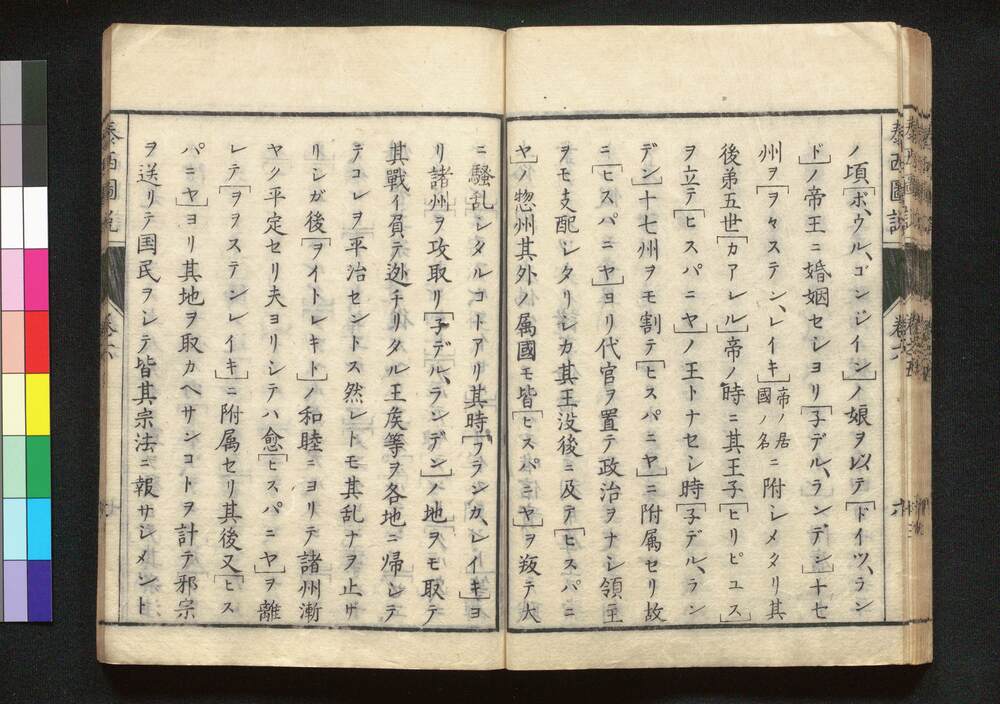 泰西圖説
巻六
ノ頃「ボウル、ゴンジイン」ノ娘ヲ以テ「ドイツ、ラン
ド」ノ帝王ニ婚姻セシヨリ「子デル、ランデン」十七
州ヲ「ヲヽステン、レイキ」帝ノ居國ノ名ニ附シメタリ其
後弟五世「カアレル」帝ノ時ニ其王子「ヒリピユス」
ヲ立テ「ヒスパニヤ」ノ王トナセシ時「子デル、ラン
デン」十七州ヲモ割テ「ヒスパニヤ」ニ附属セリ故
ニ「ヒスパニヤ」ヨリ代官ヲ置テ政治ヲナシ領主
ヲモ支配シタリシカ其王没後ニ及テ「ヒスパニ
ヤ」ノ惣州其外ノ属國モ皆「ヒスパニヤ」ヲ叛テ大
ニ騒乱シタルコトアリ其時「フランカ、レイキ」ヨ
リ諸州ヲ攻取リ「子デル、ランデン」ノ地ヲモ取テ
其戰イ負テ迯チリタル王侯等ヲ各地ニ帰シテ
テコレヲ平治セントス然レトモ其乱ナヲ止ザ
リシガ後「ヲイトレキト」ノ和睦ニヨリテ諸州漸
ヤク平定セリ夫ヨリシテハ愈「ヒスパニヤ」ヲ離
レテ「ヲヲステンレイキ」ニ附属セリ其後又「ヒス
パニヤ」ヨリ其地ヲ取カヘサンコトヲ計テ邪宗
ヲ送リテ国民ヲシテ皆其宗法ニ報サシメント
泰西圖説
巻六